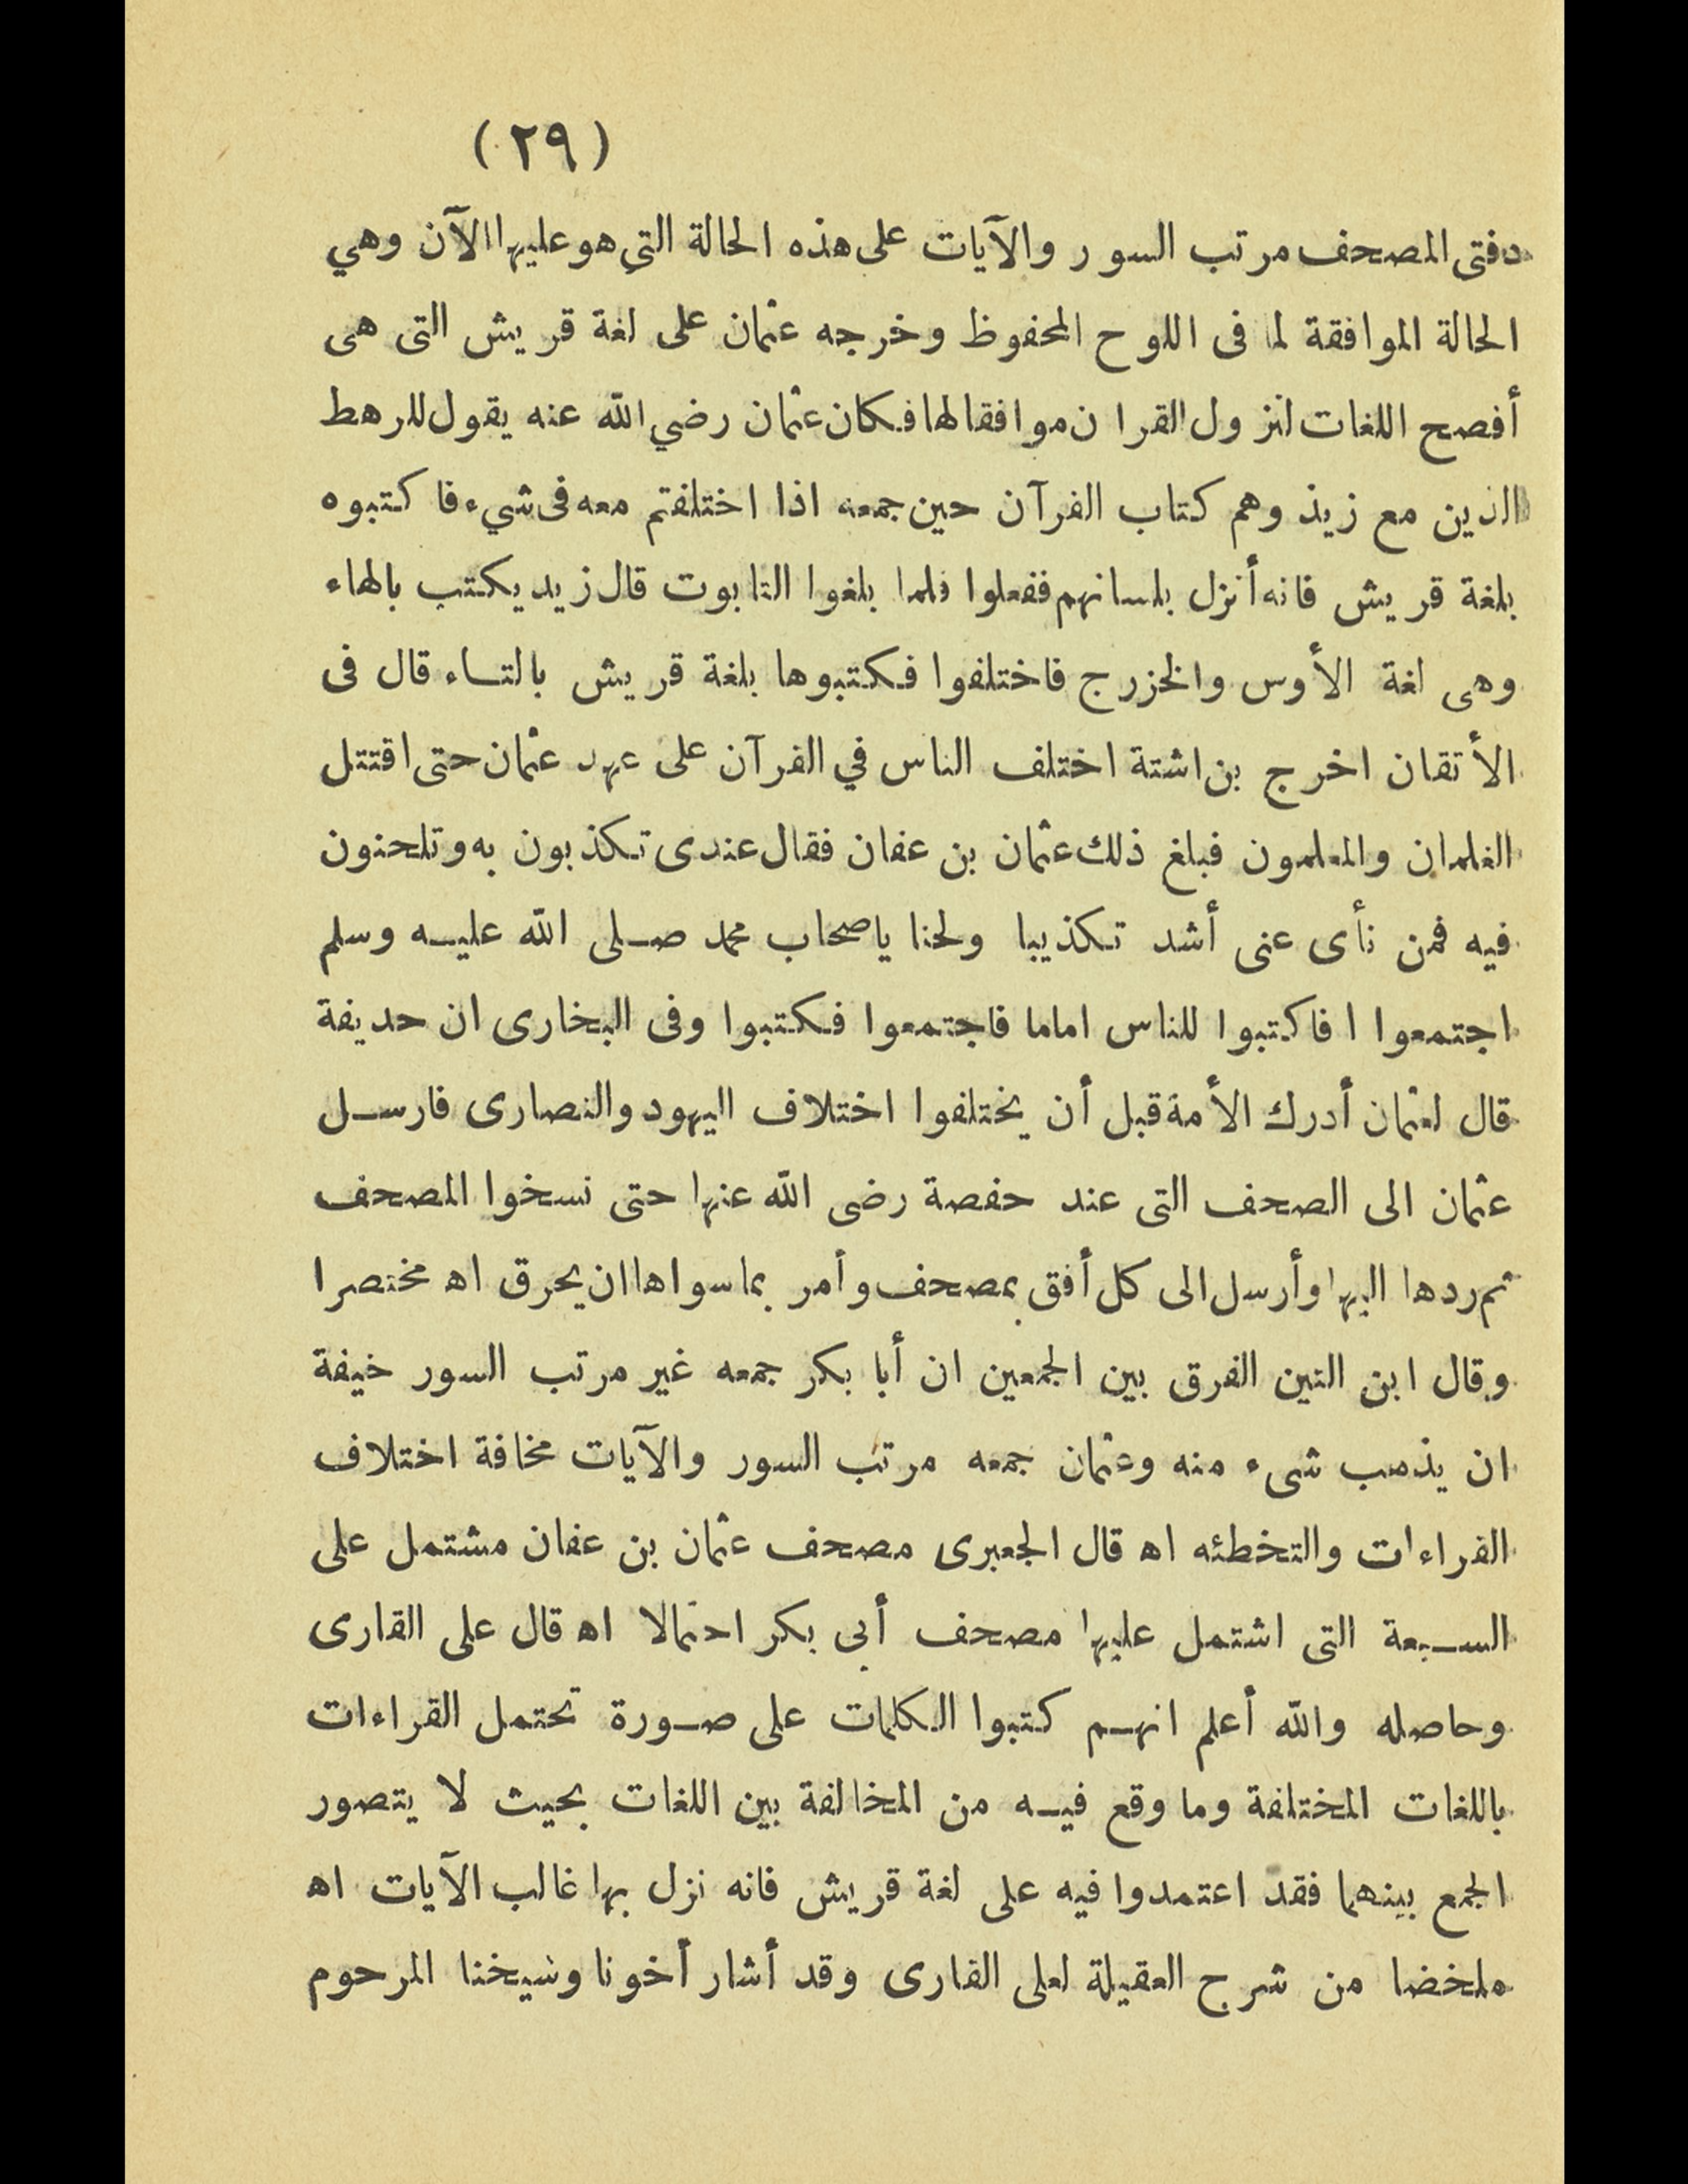 (٢٩)
دفتى المصحف مرتب السور والآيات على هذه الحالة التي هو عليها الآن وهي
الحالة الموافقة لما فى اللوح المحفوظ وخرجه عثمان على لغة قريش التى هى
أفصح اللغات لنزول القران موافقا لها فكان عثمان رضي الله عنه يقول للرهط
الذين مع زيد وهم كتاب القرآن حين جمعه اذا اختلفتم معه فى شيء فا كتبوه
بلغة قريش فانه أنزل بلسانهم ففعلوا فلما بلغوا التابوت قال زيد يكتب بالهاء
وهى لغة الأوس والخزرج فاختلفوا فكتبوها بلغة قريش بالتاء قال فى
الأتقان اخرج بن اشتة اختلف الناس في القرآن على عهد عثمان حتى اقتتل
الغلمان والمعلمون فبلغ ذلك عثمان بن عفان فقال عندى تكذبون به وتلحنون
فيه فمن نأى عنى أشد تكذيبا ولحنا ياصحاب محمد صلى الله عليه وسلم
اجتمعوا ا فاكتبوا للناس اماما فاجتمعوا فكتبوا وفى البخارى ان حديفة
قال لعثمان أدرك الأمة قبل أن يختلفوا اختلاف اليهود والنصارى فارسل
عثمان الى الصحف التى عند حفصة رضى الله عنها حتى نسخوا المصحف
ثم ردها اليها وأرسل الى كل أفق بمصحف وأمر بما سواها ان يحرق اه مختصرا
وقال ابن التين الفرق بين الجمعين ان أبا بكر جمعه غير مرتب السور خيفة
ان يذهب شىء منه وعثمان جمعه مرتب السور والآيات مخافة اختلاف
القراءات والتخطئه اه قال الجعبرى مصحف عثمان بن عفان مشتمل على
السبعة التى اشتمل عليها مصحف أبى بكر احتمالا اه قال على القارى
وحاصله والله أعلم انهم كتبوا الكلمات على صورة تحتمل القراءات
باللغات المختلفة وما وقع فيه من المخالفة بين اللغات بحيث لا يتصور
الجمع بينهما فقد اعتمدوا فيه على لغة قريش فانه نزل بها غالب الآيات اه
ملخضا من شرح العقيلة لعلى القارى وقد أشار أخونا وشيخنا المرحوم